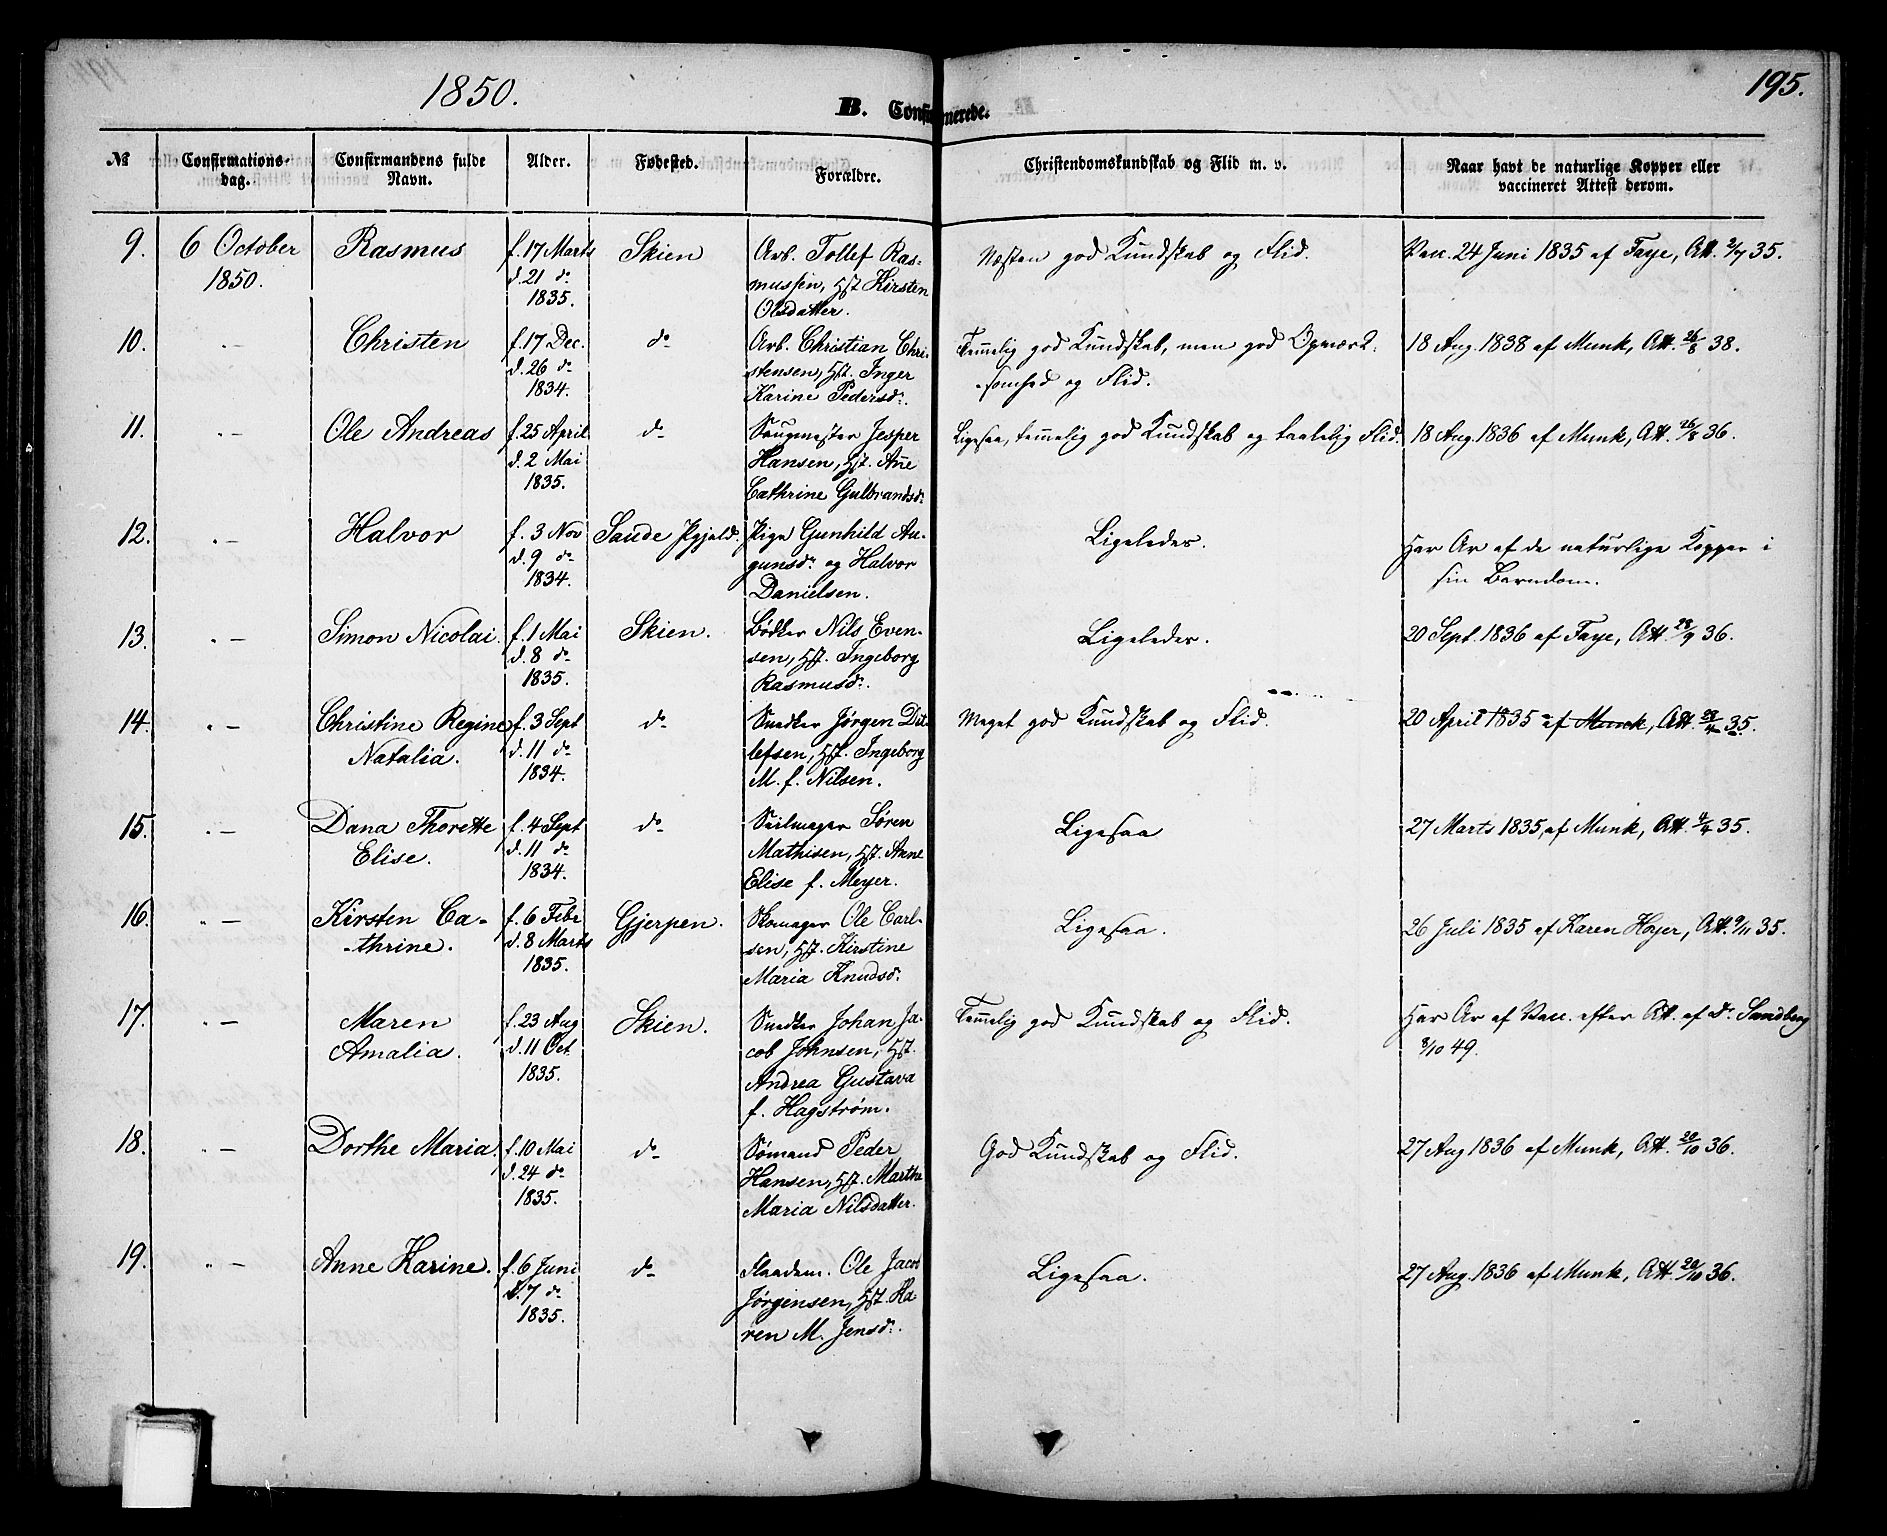 1850.
B. Confirmerede.
195.
No
Confirmations-
dag.
Confirmandens fulde
Navn.
Alder.
Fødested.
Forældre.
Christendomskundskab og Flid m. v.
Naar havt de naturlige Kopper eller
vaccineret Attest derom.
9. 6 October Rasmus f. 17 Marts Skien Arb. Tollef Ras- Næsten god Kundskab og Flid. Vac. 24 Juni 1835 af Faye, Att. 2/7 35.
1850. d. 21 do mussen, Hst. Kirsten
1835. Olsdatter.
10. " — Christen f. 17 Dec. do Arb. Christian Chri- Temmelig god Kundskab, men god Opmærk- 18 Aug. 1838 af Munk, Att. 26/8 38.
d. 26 do stensen, Hst. Inger somhed og Flid.
1834. Karine Pedersdr.
11. " — Ole Andreas f. 25 April do Saugmester Jesper Ligesaa, temmelig god Kundskab og taalelig Flid. 18 Aug. 1836 af Munk, Att. 26/8 36.
d. 2 Mai Hansen, Hst. Ane
1835. Cathrine Gulbrandsdr.
12. " — Halvor f. 3 Nov Saude Pgjeld. Pige Gunhild Au- Ligeledes. Har Ar af de naturlige Kopper i
d. 9 do gunsdr. og Halvor sin Barndom.
1834. Danielsen.
13. " — Simon Nicolai. f. 1 Mai Skien. Bødker Nils Even- Ligeledes. 20 Sept. 1836 af Faye, Att. 28/9 36.
d. 8 do sen, Hst. Ingeborg
1835. Rasmusdr.
14. " — Christine Regine f. 3 Sept do Snedker Jørgen Dit- Meget god Kundskab og Flid. 20 April 1835 af Munk, Att. 23/4 35.
Natalia. d. 11 do lefsen, Hst. Ingeborg
1834. M. f. Nilsen.
15. " — Dana Thorette f. 4 Sept do Seilmager Søren Ligesaa 27 Marts 1835, af Munk, Att. 4/4 35.
Elise. d. 11 do Mathisen, Hst. Anne
1834. Elise f. Meyer.
16. " — Kirsten Ca- f. 6 Febr Gjerpen. Skomager Ole Carl- Ligesaa. 26 Juli 1835 af Karen Høyer, Att. 9/11 35.
thrine. d. 8 Marts sen, Hst. Kirstine
1835. Maria Knudsdr.
17. " — Maren f. 23 Aug Skien. Snedker Johan Ja- Temmelig god Kundskab og Flid. Har Ar af Vac. efter Att. af Dr. Sandberg
Amalia. d. 11 Oct. cob Johnsen, Hst. 8/10 49.
1835. Andrea Gustava
f. Hagstrøm.
18. " — Dorthe Maria. f. 10 Mai do Sømand Peder God Kundskab og Flid. 27 Aug 1836 af Munk, Att. 20/10 36.
d. 24 do Hansen, Hst. Marthe
1835. Maria Nilsdatter.
19. " — Anne Karine. f. 6 Juni do Ole Jacob Ligesaa. 27 Aug. 1836 af Munk, Att. 20/10 36.
d. 7 do Jørgensen, Hst. Ka
1835. ren M. Jensdr.